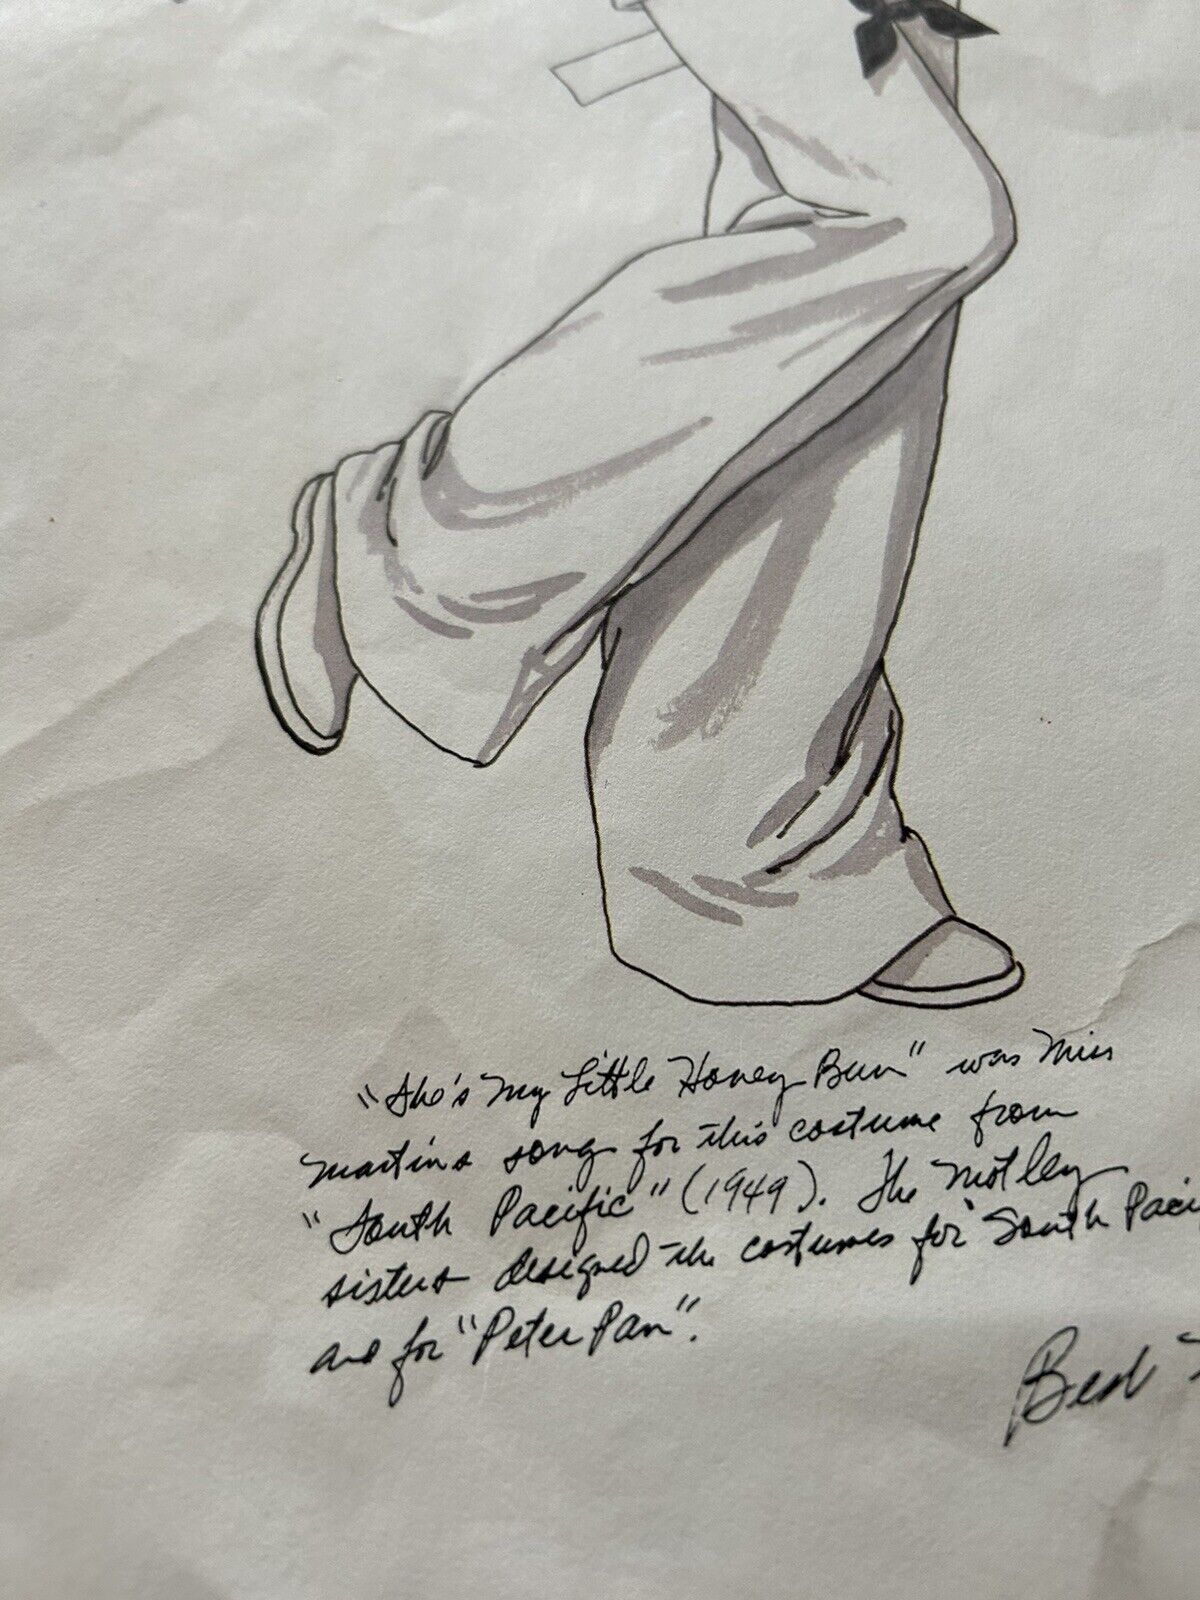 "She's my Little Honey Bun" was Miss
Martin's song for this costume from
"South Pacific" (1949). The Motley
sisters designed the costumes for "South Paci
and for "Peter Pan".